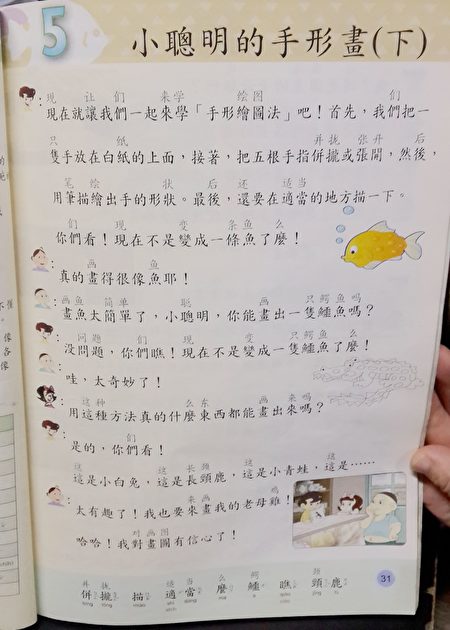 5 小聰明的手形畫(下)
现 让 们 来学 绘图 们
現在就讓我們一起來學「手形繪圖法」吧！首先，我們把一
只 纸 并拢 张开 后
隻手放在白紙的上面，接著，把五根手指併攏或張開，然後，
笔 绘 状 后 还 适当
用筆描繪出手的形狀。最後，還要在適當的地方描一下。
们 现 变 条鱼 么
你們看！現在不是變成一條魚了麼！
画 鱼
真的畫得很像魚耶！
画鱼 简单 聪 画 只鳄鱼吗
畫魚太簡單了，小聰明，你能畫出一隻鱷魚嗎？
问题 们 现 变 只鳄鱼 么
沒問題，你們瞧！現在不是變成一隻鱷魚了麼！
哇，太奇妙了！
这种 么东 画 来吗
用這種方法真的什麼東西都能畫出來嗎？
们
是的，你們看！
这 这 长颈 这 这
這是小白兔，這是長頸鹿，這是小青蛙，這是……
来画 鸡
太有趣了！我也要來畫我的老母雞！
对画图
哈哈！我對畫圖有信心了！
并 拢 适 当 么 鳄 颈
併 攏 描 適 當 麼 鱷 瞧 頸 鹿
31